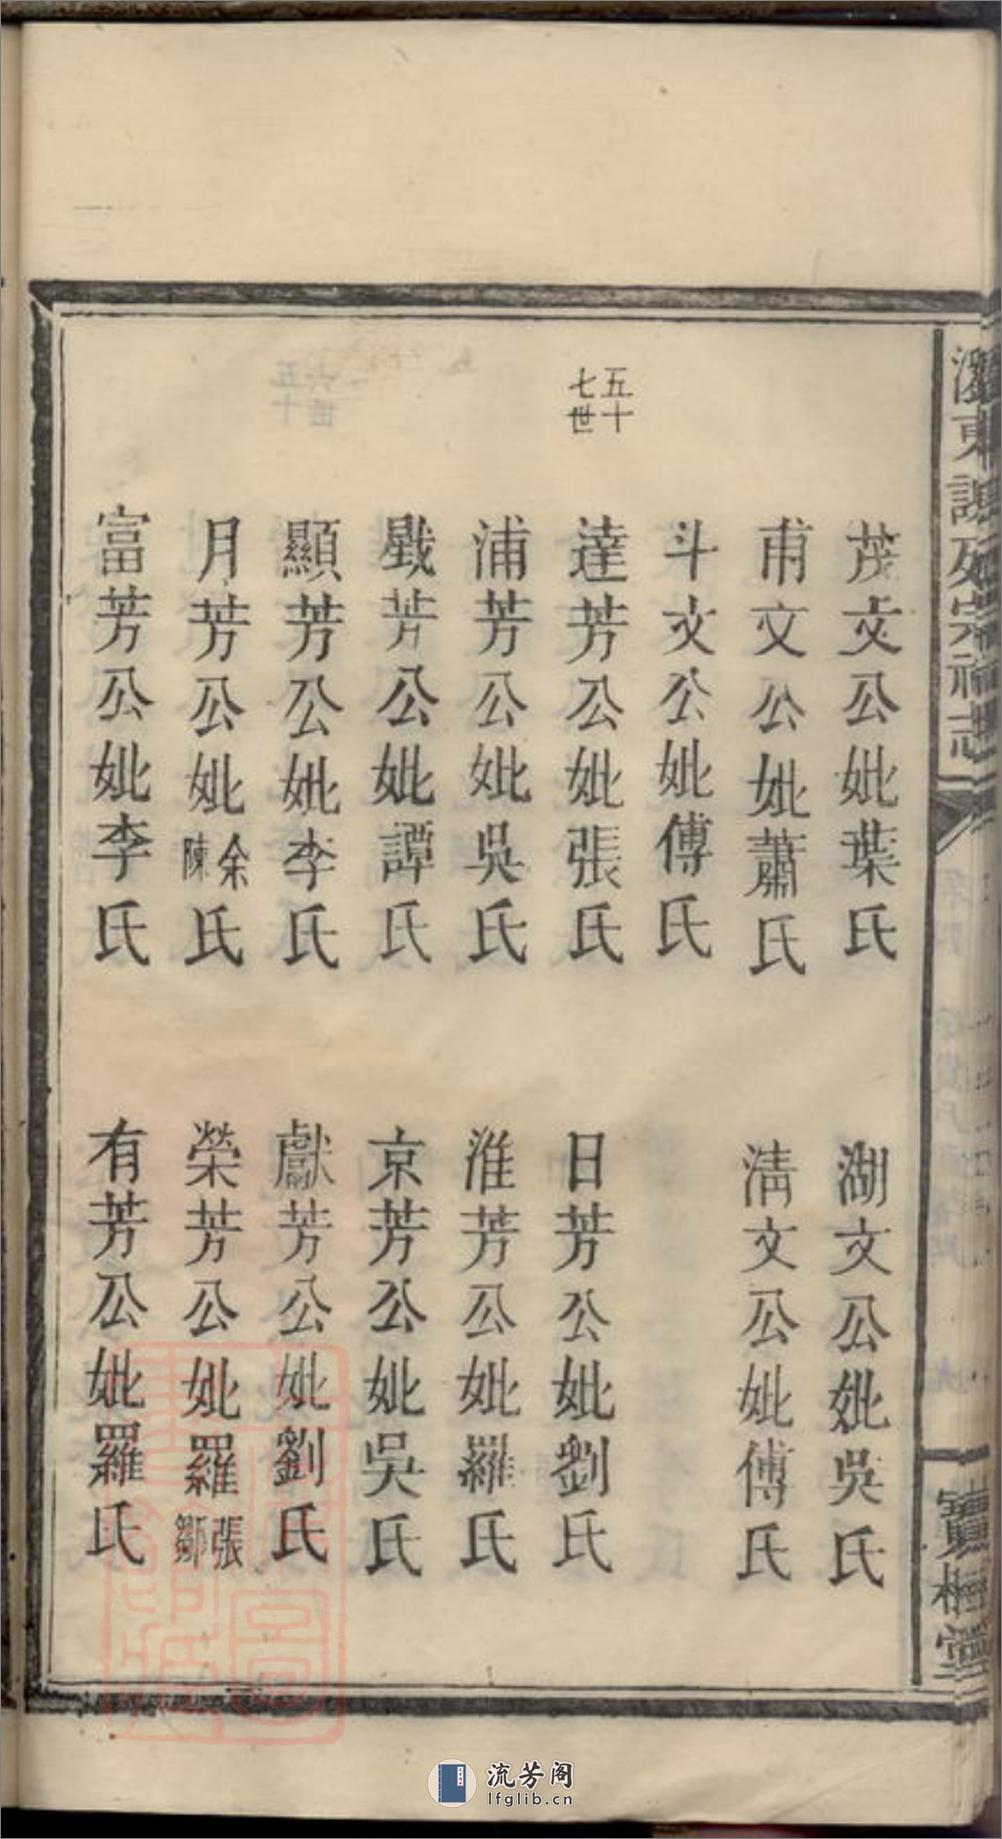 東
宗祠志
寶樹堂
茂文公妣葉氏
湖文公妣吳氏
甫文公妣蕭氏
清文公妣傅氏
斗文公妣傅氏
五十七世
達芳公妣張氏
日芳公妣劉氏
浦芳公妣吳氏
淮芳公妣羅氏
戥芳公妣譚氏
京芳公妣吳氏
顯芳公妣李氏
獻芳公妣劉氏
月芳公妣余陳氏
榮芳公妣羅張鄒
富芳公妣李氏
有芳公妣羅氏
流芳阁
lfglib.cn